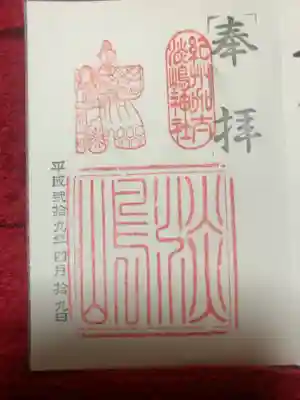 奉拝
紀州加太
淡嶋神社
淡嶋
平成貮拾九年四月拾九日